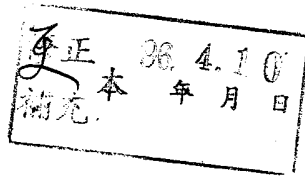 更正 96. 4. 10
本 年 月 日
補充.